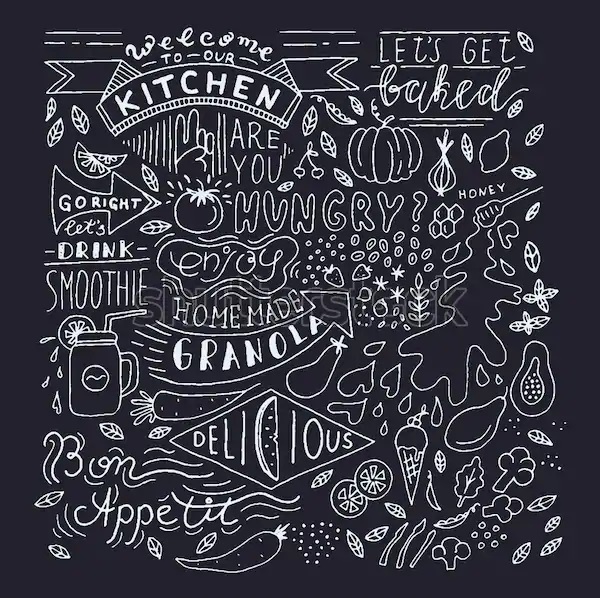 Welcome
TO OUR
KITCHEN
LET'S GET
baked
ARE
YOU
HUNGRY?
GO RIGHT
let's
DRINK
SMOOTHIE
HONEY
enjoy
HOMEMADE
GRANOLA
shutterstock
DELICIOUS
Bon
Appétit